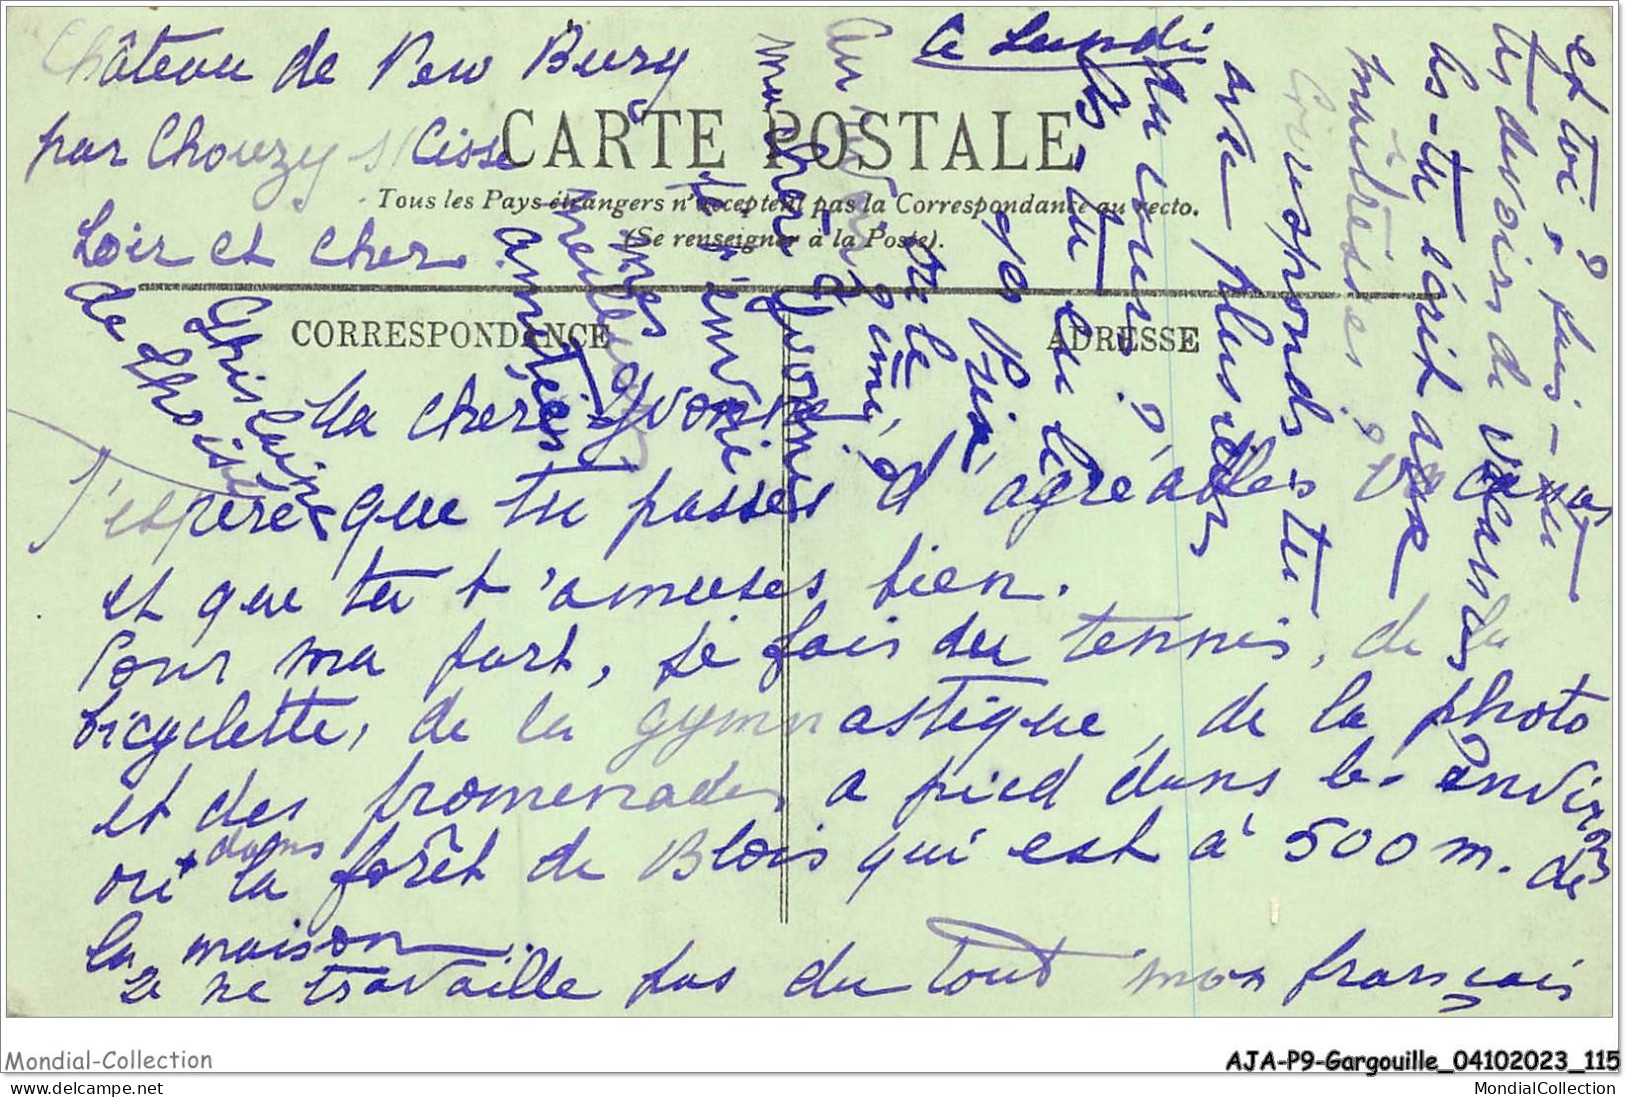 Château de Pew Bury
par Chouzy s/Cisse
Loir et Cher
Ce Lundi
CARTE POSTALE
Tous les Pays étrangers n'acceptent pas la Correspondance au recto.
(Se renseigner à la Poste).
CORRESPONDANCE
ADRESSE
Ma chère Yvonne,
J'espère que tu passes d'agréables vacances
et que tu t'amuses bien.
Pour ma part, je fais du tennis, de la
bicyclette, de la gymnastique, de la photo
et des promenades a pied dans les environs
ou dans la forêt de Blois qui est à 500 m. de
la maison.
Je ne travaille pas du tout mon français
et toi, fais-tu
tes devoirs de vacances
As-tu écrit à
maîtresses ?
Corresponds-tu
avec plusieurs
du cours ?
As-tu eu
Au revoir
ma chère Yvonne
je t'envoie
mes
meilleures
amitiés
Ghislaine
de Thoisy
Mondial-Collection
AJA-P9-Gargouille_04102023_115
MondialCollection